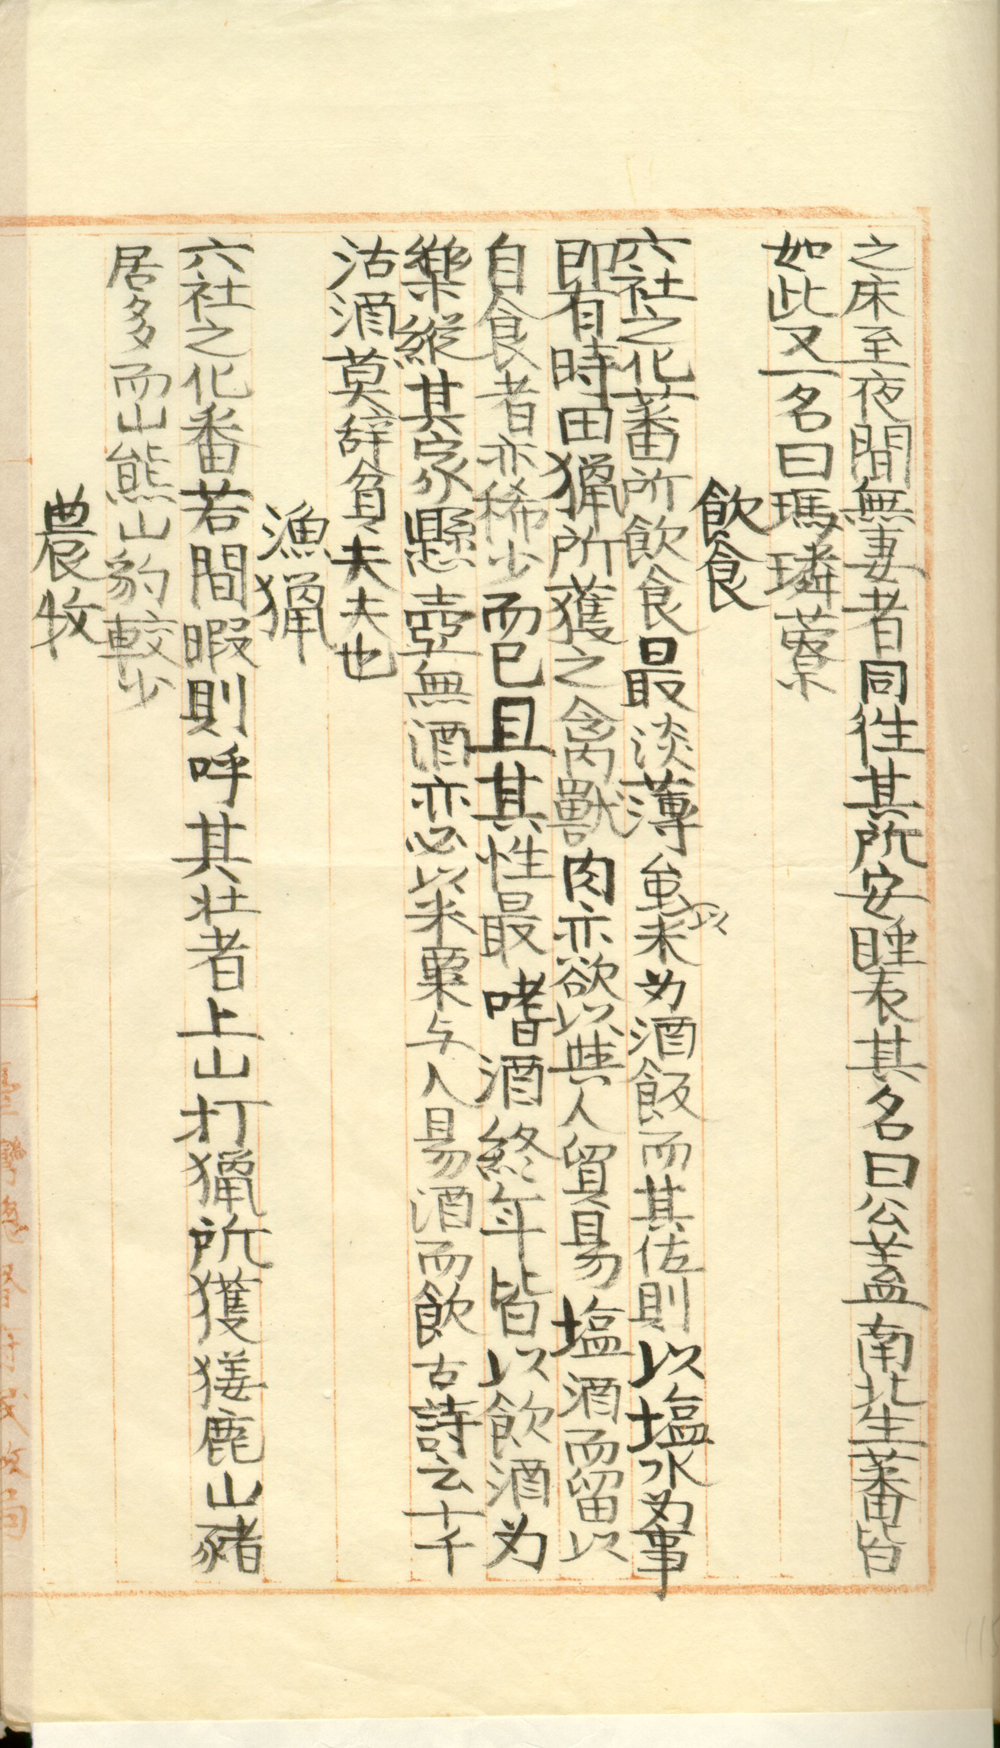 之床至夜間無妻者同往其所安睡表其名曰公盖南北生蕃皆
如此又一名曰瑪璘藔
飲食
六社之化蕃所飲食最淡薄虽以未为酒飯而其佐則以塩水为事
即有時田獵所獲之禽獸肉亦欲以與人貿易塩酒而留以
自食者亦稀少而已且其性最嗜酒終年皆以飲酒为
樂縱其家懸壺無酒亦必以米粟与人易酒而飲古詩云十千
沽酒莫辞貧夫夫也
漁獵
六社之化番若間暇則呼其壮者上山打獵所獲獐鹿山豬
居多而山熊山豹較少
農牧
臺灣總督府民政局